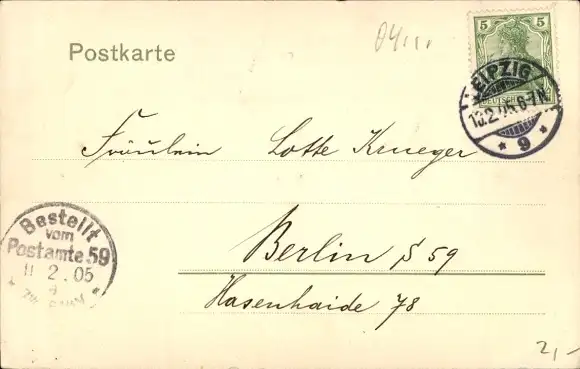 Postkarte
5
5
LEIPZIG
10.2.05.6-7N.
* 9 *
Fräulein Lotte Krueger
Bestellt
vom
Postamte 59
11 2.05
Berlin S 59
Hasenhaide 78
2,-